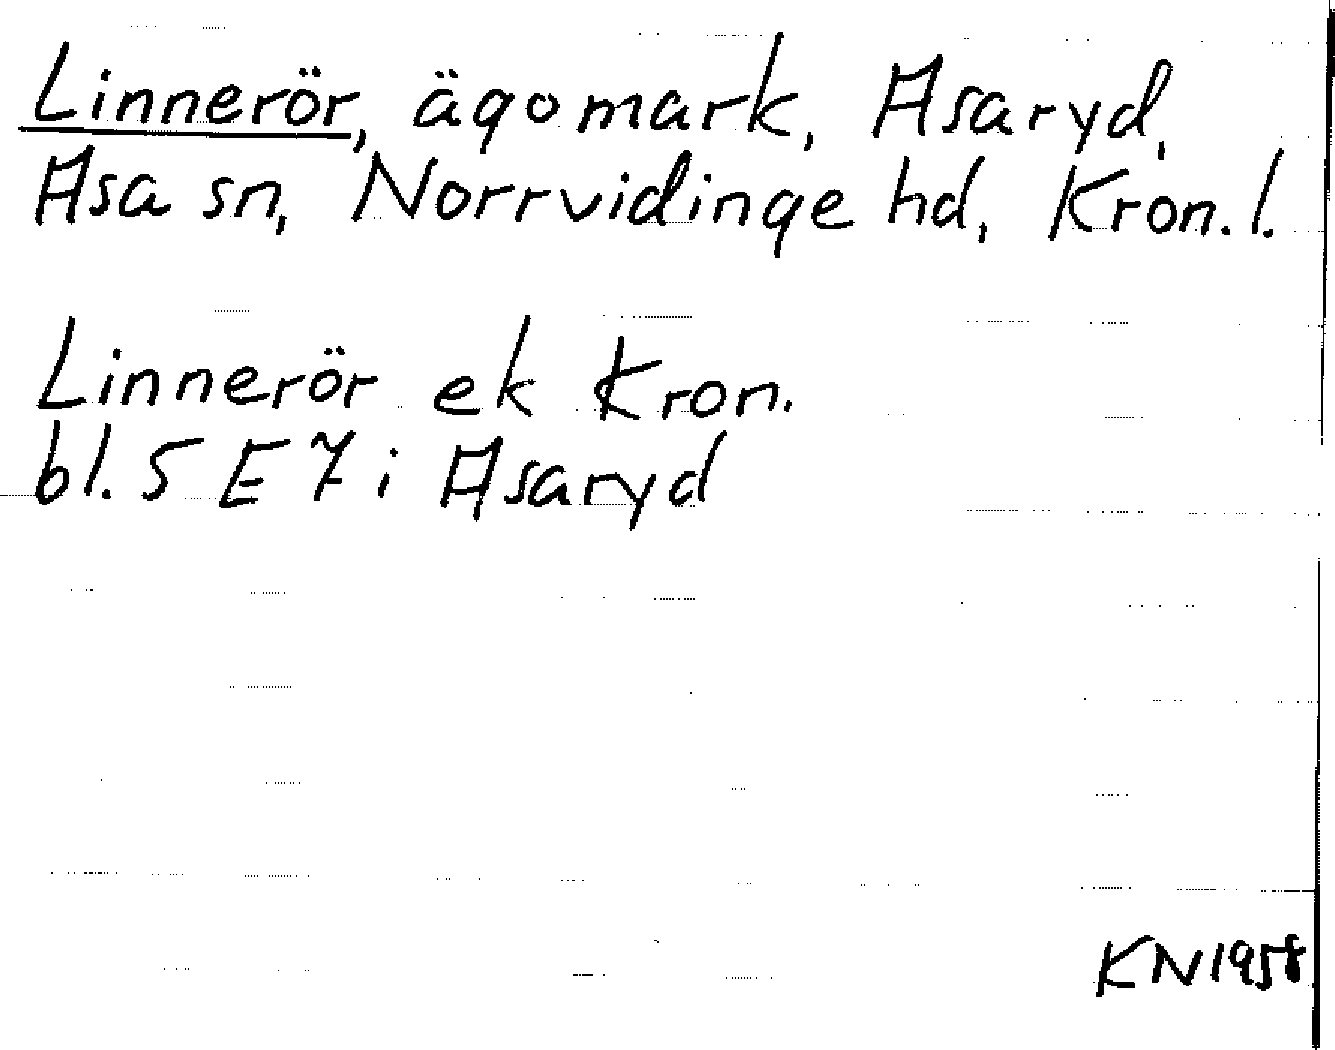 Linnerör, ägomark, Asaryd,
Asa sn, Norrvidinge hd, Kron. l.
Linnerör ek Kron.
bl. 5 E 7 i Asaryd
KN 1958